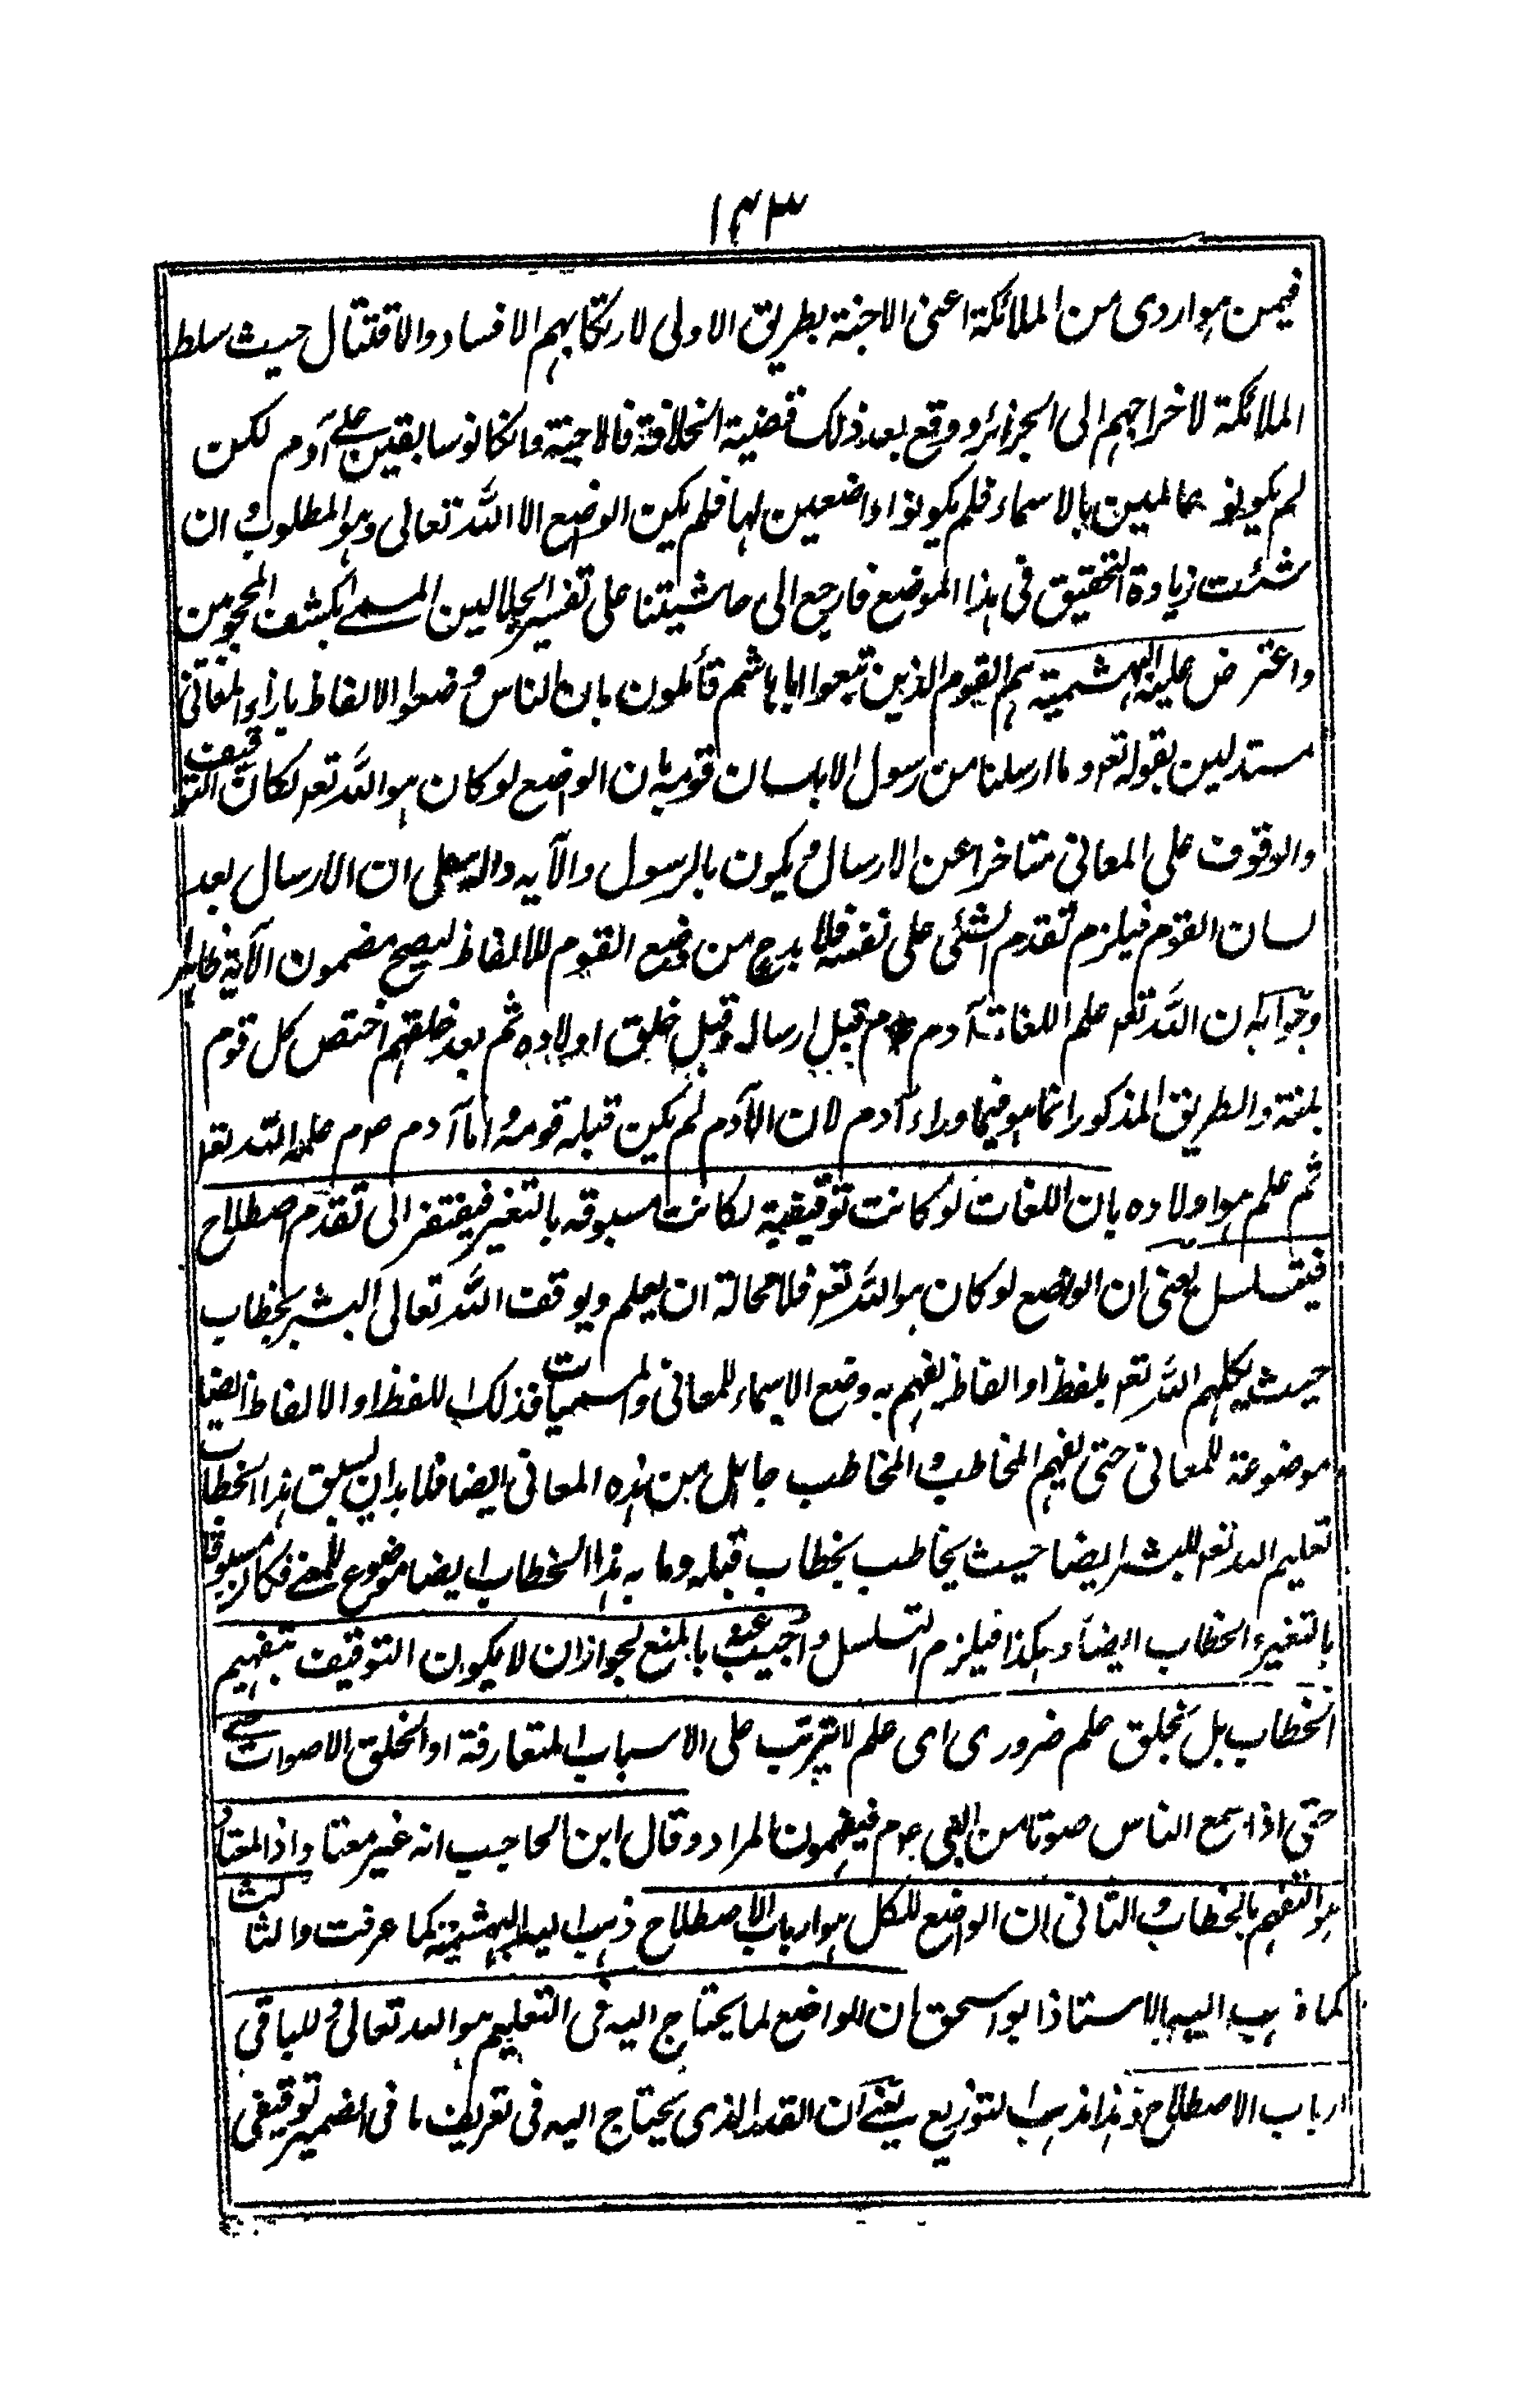 ١٤٣
فيمن هو اردى من الملائكة اعنى الاجنة بطريق الاولى لارتكابهم الافساد والاقتتال حيث سلط
الملائكة لاخراجهم الى الجزائر ووقع بعد ذلك قضية الخلافة فالاجنة وان كانوا سابقين على آدم لكن
لم يكونو عالمين بالاسماء فلم يكونوا واضعين لها فلم يكن الواضع الا الله تعالى وهو المطلوب و ان
شئت زيادة التحقيق فى هذا الموضع فارجع الى حاشيتنا على تفسير الجلالين المسمى بكشف المحجوبين
واعترض عليه البهشمية هم القوم الذين تبعوا ابا هاشم قائلون بان الناس وضعوا الالفاظ بازاء المعانى
مستدلين بقوله تعو وما ارسلنا من رسول الا بلسان قومه بان الواضع لو كان هو الله تعو لكان التوقيف
والوقوف على المعانى متاخرا عن الارسال و يكون بالرسول والآيه دالة على ان الارسال بعد
لسان القوم فيلزم تقدم الشئى على نفسه فلا بد ح من وضع القوم للالفاظ ليصح مضمون الآية ظاهر
وجوابه ان الله تعو علم اللغات آدم عم قبل ارساله وقبل خلق اولاده ثم بعد خلقهم اختص كل قوم
بلغة والطريق المذكور انما هو فيما وراء آدم لان الآدم لم يكن قبله قوم و اما آدم عم علمه الله تعو
ثم علم هو اولاده بان اللغات لو كانت توقيفية لكانت مسبوقه بالتغير فيفتقر الى تقدم اصطلاح
فيتسلسل يعنى ان الواضع لو كان هو الله تعو فلا محالة ان يعلم ويوقف الله تعالى البشر بخطاب
حيث يكلمهم الله تعو بلفظ او الفاظ يفهم به وضع الاسماء للمعانى والمسميات فذلك اللفظ او الالفاظ ايضا
موضوعة للمعانى حتى يفهم المخاطب و المخاطب جاهل من هذه المعانى ايضا فلا بد ان يسبق هذا الخطاب
تعليم الله تعو للبشر ايضا حيث يخاطب بخطاب قبله وما به هذا الخطاب ايضا موضوع للمعنى فكان مسبوقا
بالتغير والخطاب ايضا و هكذا فيلزم التسلسل و اجيب عنه بالمنع لجواز ان لا يكون التوقيف بتفهيم
الخطاب بل بخلق علم ضرورى اى علم لا يترتب على الاسباب المتعارفة او الخلق الاصوات
حتى اذا سمع الناس صوتا من عم فيفهمون المراد وقال ابن الحاجب انه غير معتاد واذ المعتاد
هو التفهيم بالخطاب و الثانى ان الواضع للكل هو ارباب الاصطلاح ذهب اليه البهشمية كما عرفت والثالث
كما ذهب اليه الاستاذ ابو اسحق بان الواضع لما يحتاج اليه فى التعليم هو الله تعالى و للباقى
ارباب الاصطلاح و هذا مذهب التوزيع يعنى ان القدر الذى يحتاج اليه فى تعريف ما فى الضمير توقيفى